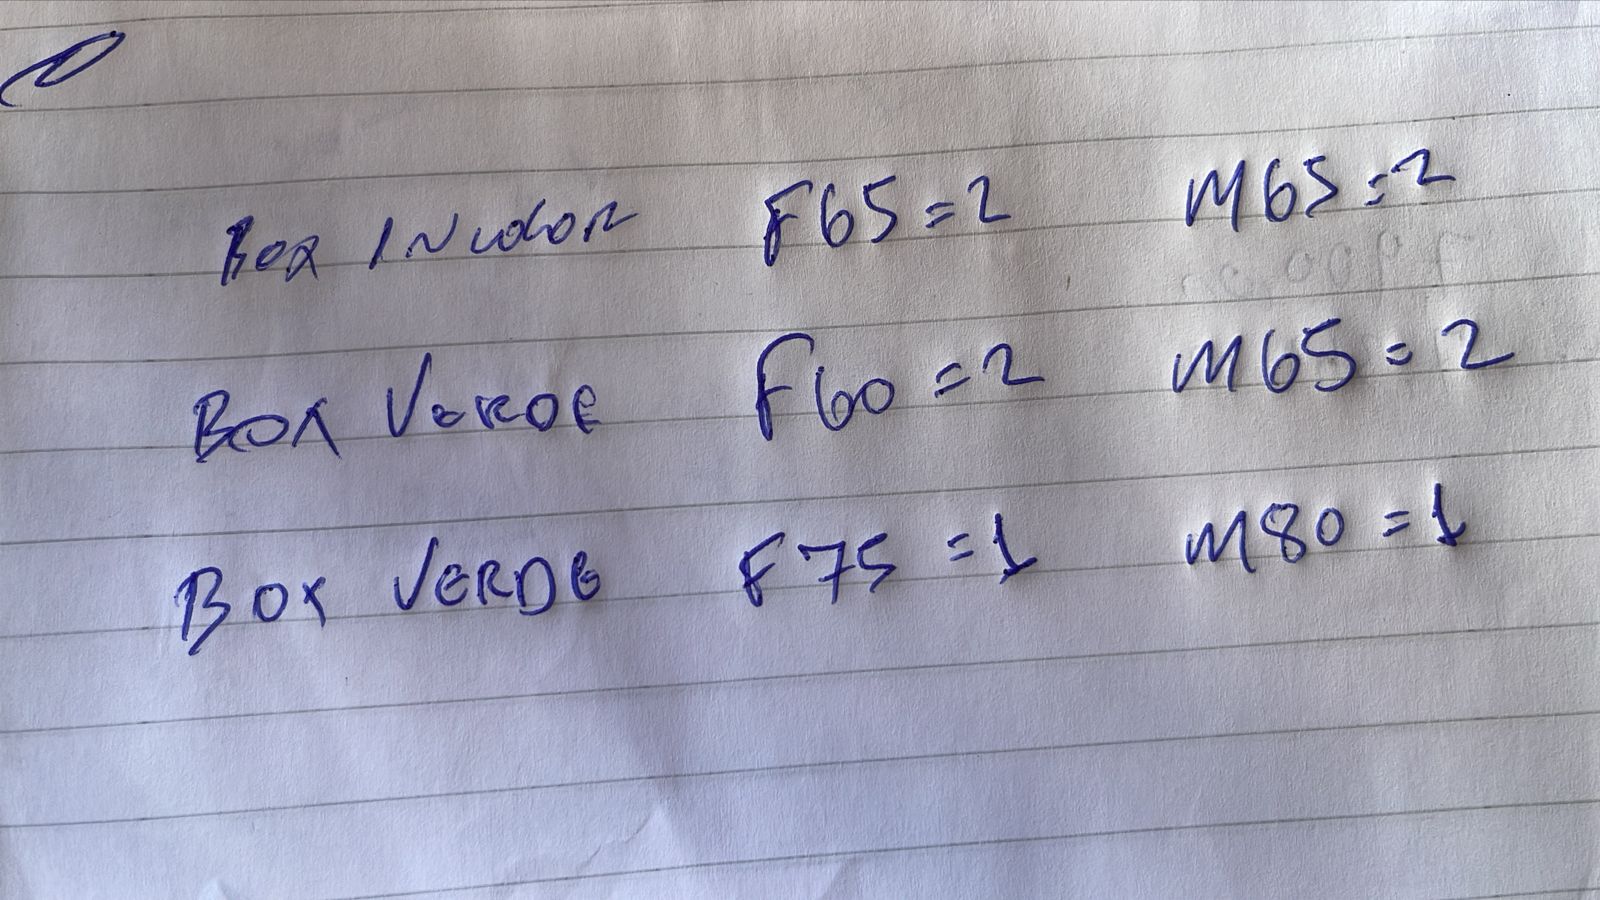 BOX INCOLOR F65=2 M65=2
BOX VERDE F60=2 M65=2
BOX VERDE F75=1 M80=1